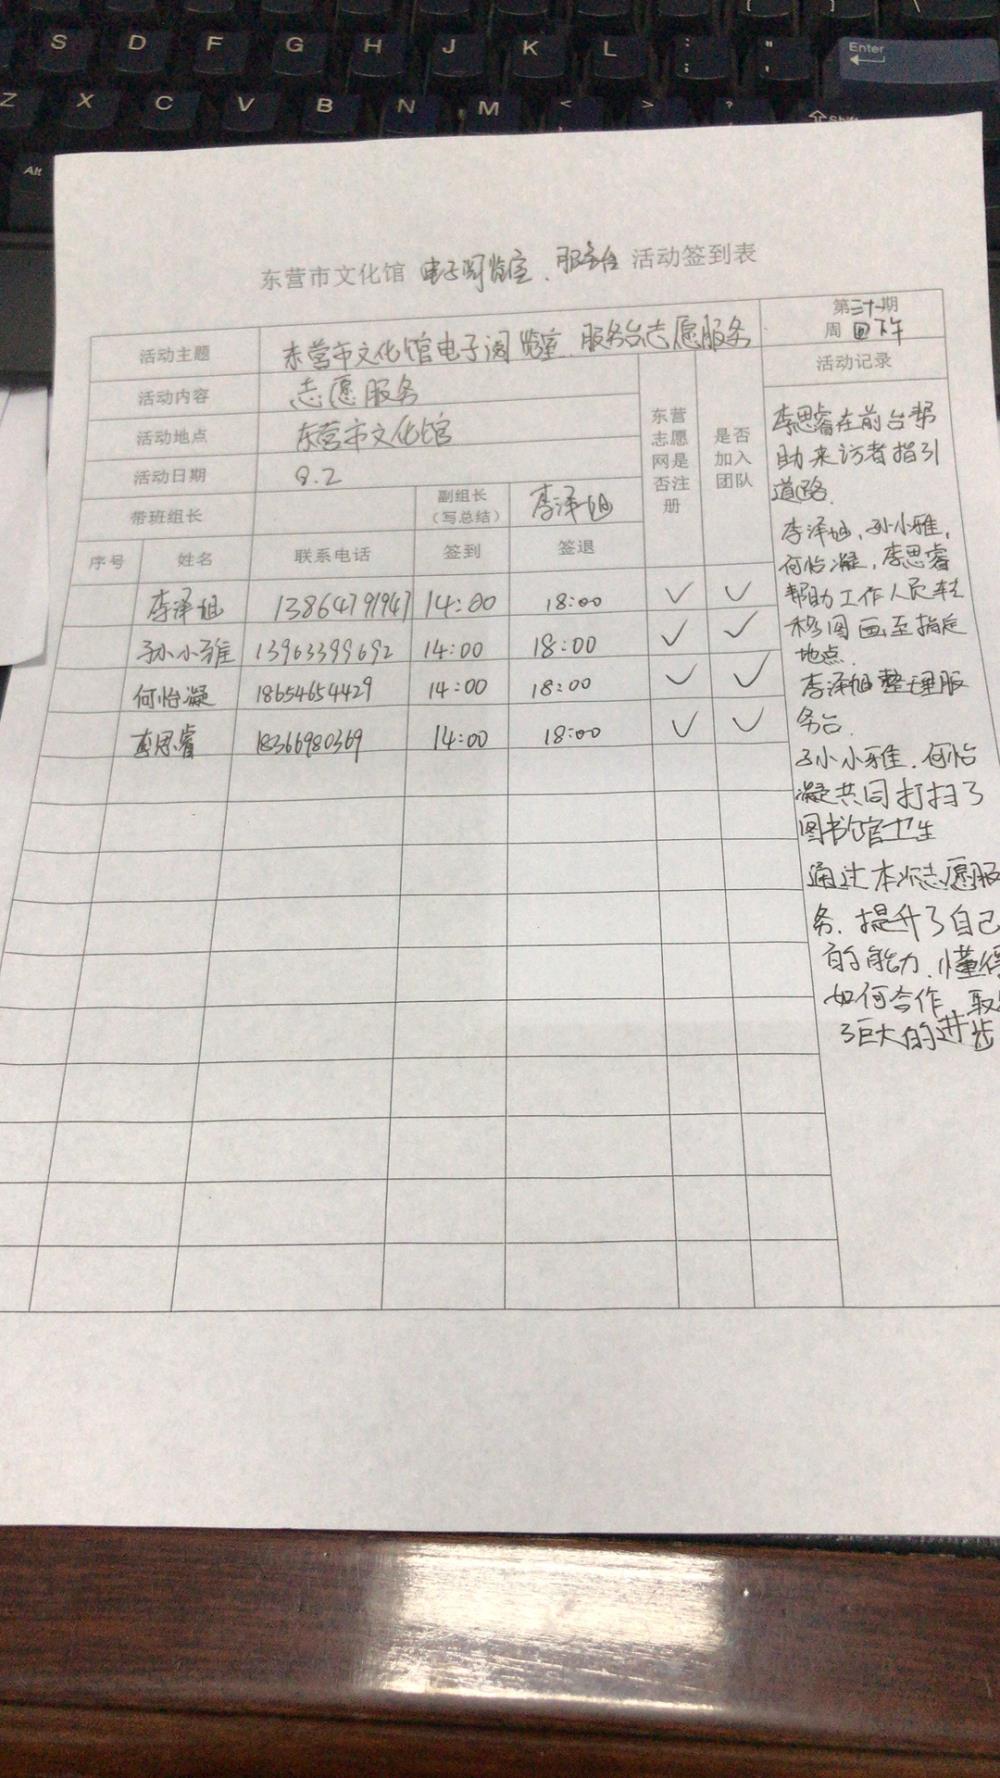 S D F G H J K L : ; " '
Enter
Z X C V B N M < > ?
Shift
Alt
东营市文化馆 电子阅览室、服务台 活动签到表
活动主题 东营市文化馆电子阅览室、服务台志愿服务
第三十一期
周四下午
活动内容 志愿服务
活动地点 东营市文化馆
活动日期 8.2
东营
志愿
网是
否注
册
是否
加入
团队
活动记录
带班组长
副组长
(写总结)
李泽旭
序号 姓名 联系电话 签到 签退
李泽旭 13864791947 14:00 18:00 ✓ ✓
孙小雅 13963399692 14:00 18:00 ✓ ✓
何怡凝 18654654429 14:00 18:00 ✓ ✓
李思睿 18366980369 14:00 18:00 ✓ ✓
李思睿在前台帮
助来访者指引
道路.
李泽旭,孙小雅,
何怡凝,李思睿
帮助工作人员转
移图画至指定
地点.
李泽旭整理服
务台.
孙小雅.何怡
凝共同打扫了
图书馆卫生
通过本次志愿服
务.提升了自己
的能力.懂得
如何合作.取
了巨大的进步